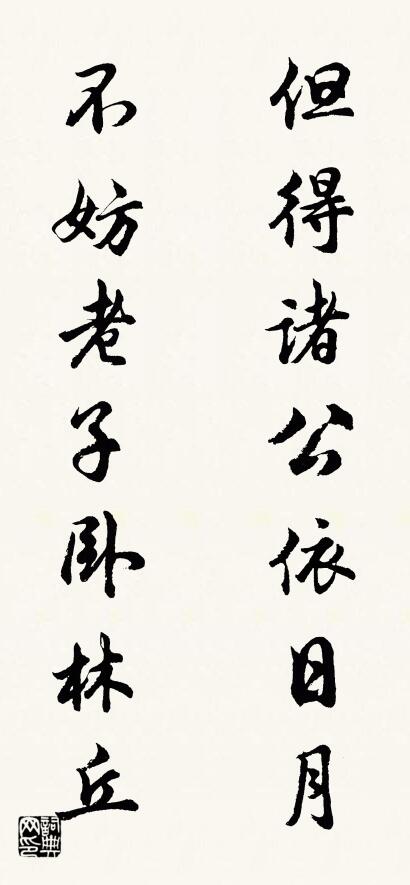 但得诸公依日月
不妨老子卧林丘
詞典网印